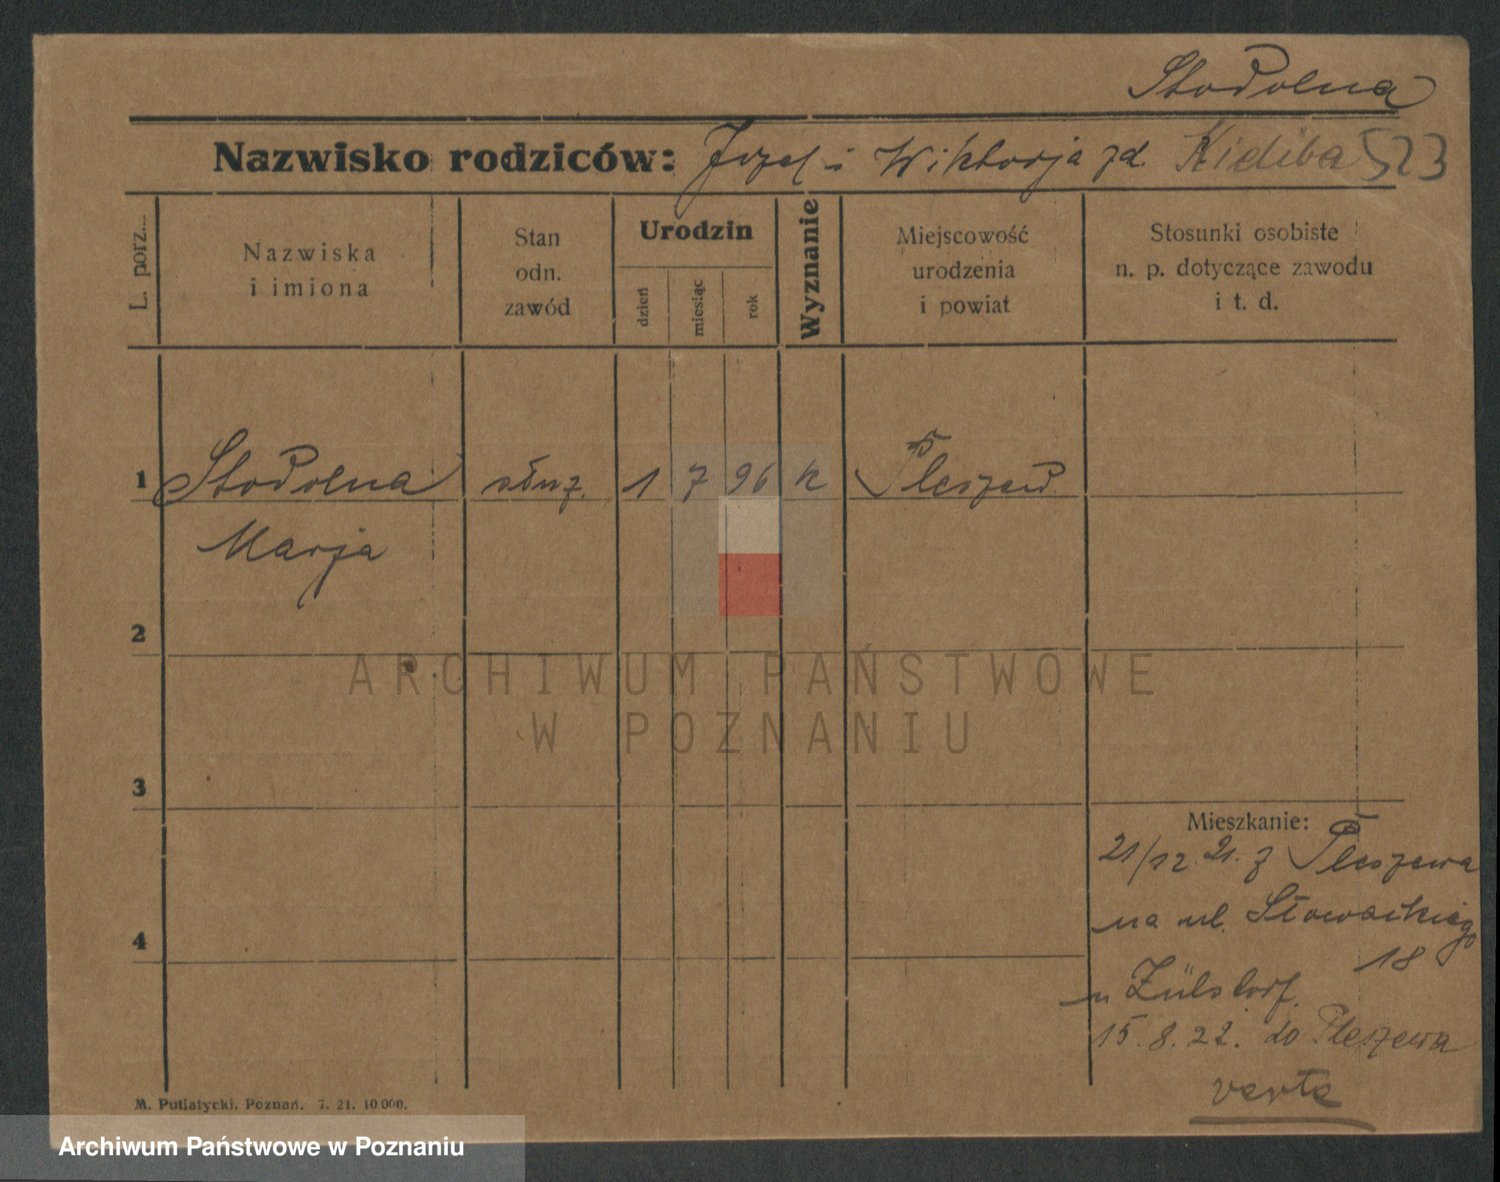 Stodolna
Nazwisko rodziców: Józef i Wiktorja zd. Kidiba 523
L. porz.
Nazwiska
i imiona
Stan
odn.
zawód
Urodzin
dzień
miesiąc
rok
Wyznanie
Miejscowość
urodzenia
i powiat
Stosunki osobiste
n. p. dotyczące zawodu
i t. d.
1 Stodolna służ. 1 7 96 k Pleszew
Marja
2
ARCHIWUM PAŃSTWOWE
W POZNANIU
3
Mieszkanie:
21/12. 21. z Pleszewa
na ul. Słowackiego
4
18
u Zülsdorf.
15. 8. 22. do Pleszewa
verte
M. Putiatycki. Poznań. 7. 21. 10000.
Archiwum Państwowe w Poznaniu